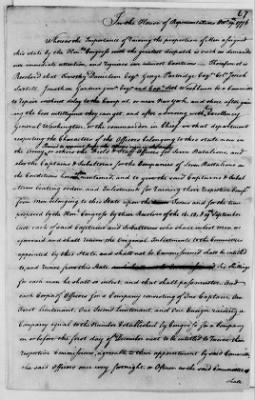 In the House of Representatives Octr 19 1776
Whereas the Importance of raising the proportion of Men assigned
this State by the Honble Congress with the greatest dispatch is such as demands
our immediate attention, and requires our utmost Exertions — Therefore it is
Resolved that Timothy Danielson Esqr George Partridge Esqr Col. Joseph
Jonathan Gardner Esqr be a Committee
to repair without delay to the Camp at or near New York, and there after gaining
the best intelligence they can get, and after advising with his Excellency
General Washington, or the commander in Chief in that department
respecting the Character of the Officers belonging to this State now in
the Army, to
also the Captains & Subalterns for the Companies of Seven Battalions on
the Conditions mentioned, and to give the said Captains & Subalterns
beating orders and Inlistments for raising their respective Companies
from Men belonging to this State upon the Terms and for the time
proposed by the Honble Congress by their Resolves of the September
last each of said Captains and Subalterns who shall inlist men as
aforesaid and shall return the Original Inlistments to the Committee
appointed by this State and shall not be Commissioned shall be intitled
to, and receive from this State Shillings
for each man he shall so inlist and that shall pass muster. And
each Corps of Officers for a Company consisting of One Captain One
first Lieutenant, One Second Lieutenant, and One Ensign raising a
Company equal to the Number Established by Congress for a Company
on or before the first day of December next to be intitled to receive their
respective Commissions, agreeable to their appointment by said Committee
the said Officers once every fortnight or oftener to the said Committee a
State